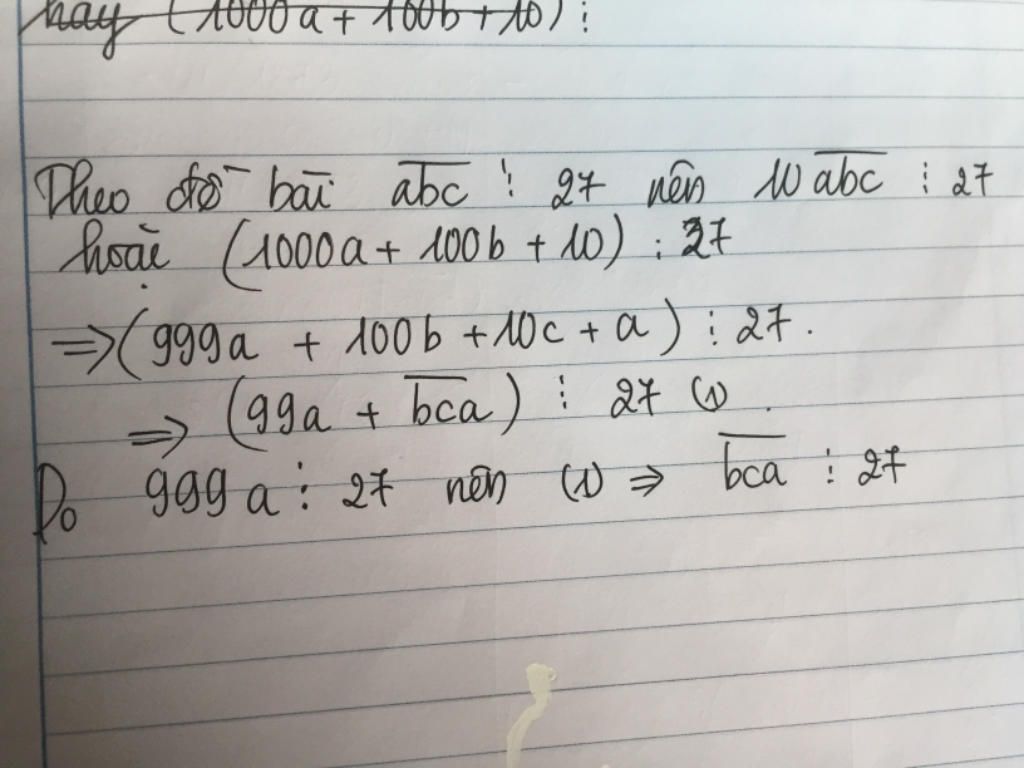 hay (1000a + 100b + 10) ⋮
Theo đề bài \overline{abc} ⋮ 27 nên 10\overline{abc} ⋮ 27
hoặc (1000a + 100b + 10) ⋮ 27
⇒ (999a + 100b + 10c + a) ⋮ 27.
⇒ (99a + \overline{bca}) ⋮ 27 (1)
Do 999a ⋮ 27 nên (1) ⇒ \overline{bca} ⋮ 27